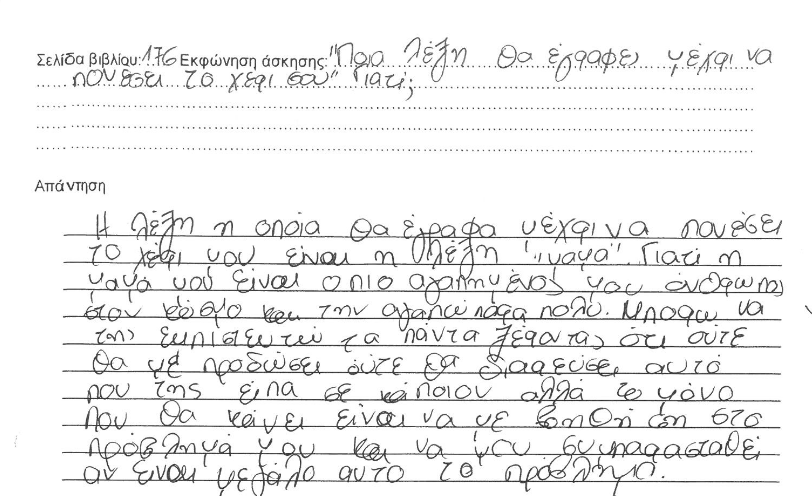 Σελίδα βιβλίου: 176 Εκφώνηση άσκησης: "Ποια λέξη θα έγραφες μέχρι να
πονέσει το χέρι σου" Γιατί;
Απάντηση
Η λέξη η οποία θα έγραφα μέχρι να πονέσει
το χέρι μου είναι η λέξη "μαμά". Γιατί η
μαμά μού είναι ο πιο αγαπημένος μου άνθρωπος
στον κόσμο και την αγαπώ πάρα πολύ. Μπορώ να
της εμπιστευτώ τα πάντα ξέροντας ότι ούτε
θα με προδώσει ούτε θα διαρεύσει αυτό
που της είπα σε κάποιον αλλά το μόνο
που θα κάνει είναι να με βοηθήση στο
πρόβλημά μου και να μου συμπαρασταθεί
αν είναι μεγάλο αυτό το πρόβλημα.